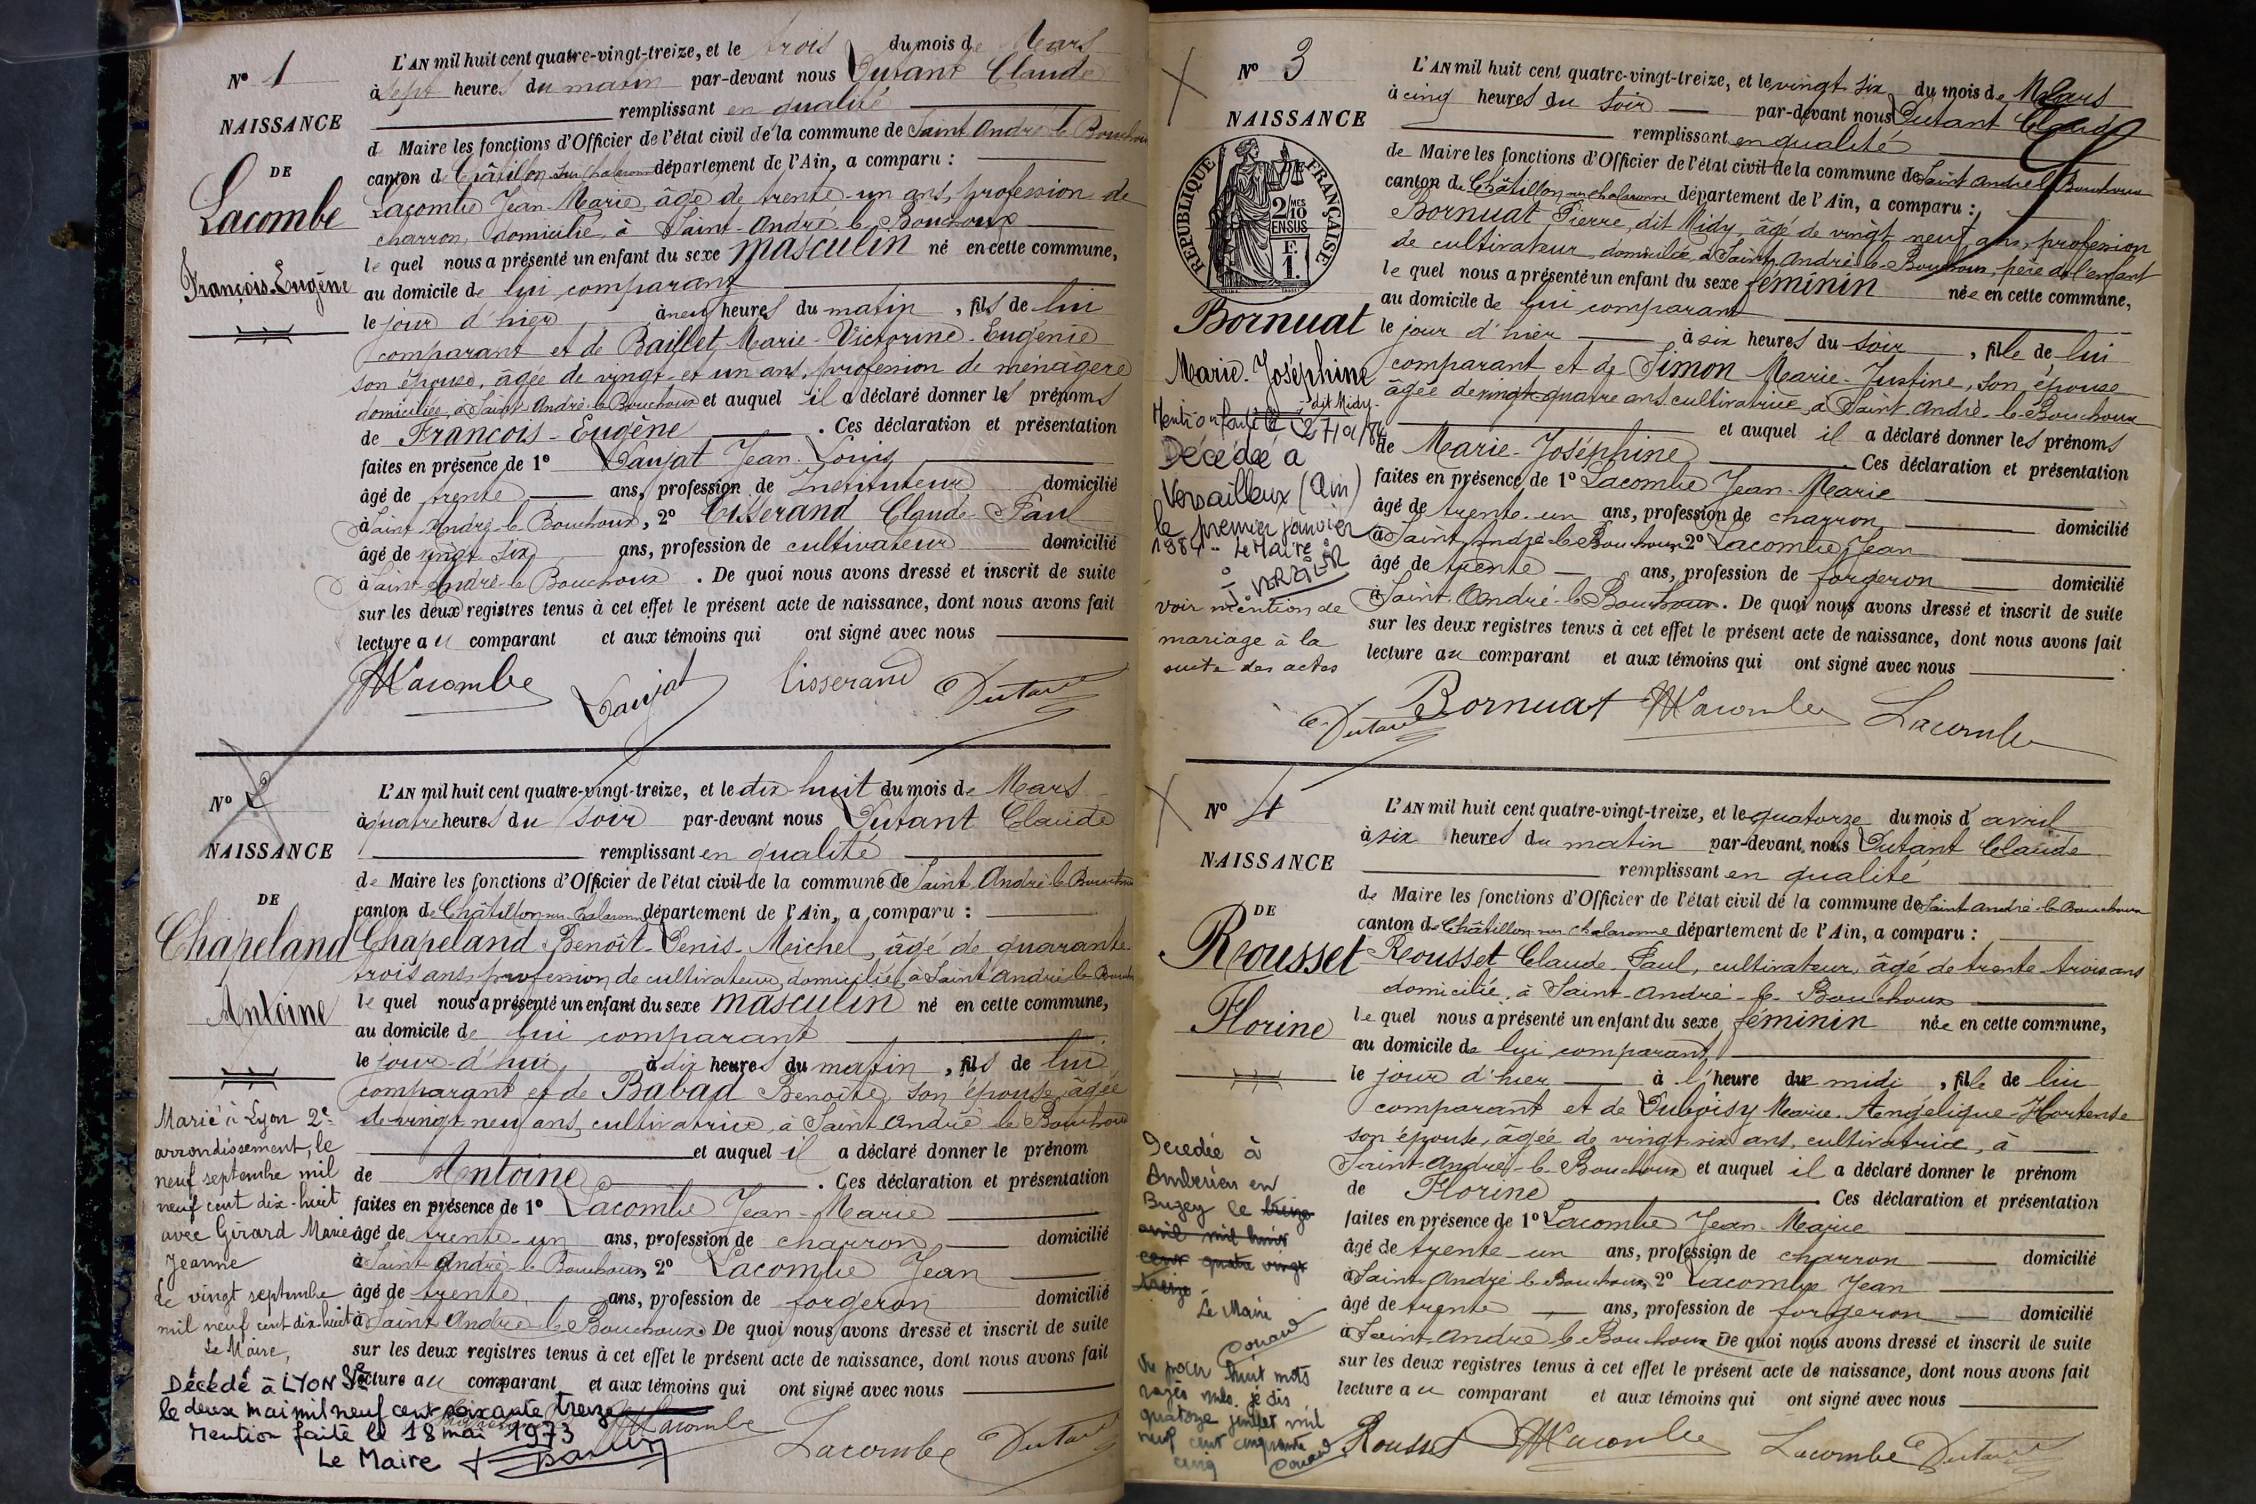 N° 1
NAISSANCE
DE
Lacombe
François-Eugène
L'AN mil huit cent quatre-vingt-treize, et le trois du mois de Mars
à sept heures du matin par-devant nous Dutant Claude
remplissant en qualité
de Maire les fonctions d'Officier de l'état civil de la commune de Saint André le Bouchoux
canton de Châtillon sur Chalaronne département de l'Ain, a comparu :
Lacombe Jean-Marie, âgé de trente-un ans, profession de
charron, domicilié à Saint-André-le Bouchoux
le quel nous a présenté un enfant du sexe masculin né en cette commune,
au domicile de lui comparant
le jour d'hier à neuf heures du matin, fils de lui
comparant et de Baillet, Marie-Victorine-Eugénie
son épouse, âgée de vingt-et un ans, profession de ménagère
domiciliée à Saint-André-le Bouchoux et auquel il a déclaré donner les prénoms
de François-Eugène. Ces déclaration et présentation
faites en présence de 1° Jean-Louis
âgé de trente ans, profession de Instituteur domicilié
à Saint-André-le Bouchoux, 2° Tisserand Claude-Paul
âgé de vingt six ans, profession de cultivateur domicilié
à Saint André-le Bouchoux. De quoi nous avons dressé et inscrit de suite
sur les deux registres tenus à cet effet le présent acte de naissance, dont nous avons fait
lecture au comparant et aux témoins qui ont signé avec nous
JMLacombe Tisserand Dutant
N° 2
NAISSANCE
DE
Chapeland
Antoine
Marié à Lyon 2e
arrondissement, le
neuf septembre mil
neuf cent dix-huit
avec Girard Marie
Jeanne
Le vingt septembre
mil neuf cent dix-huit
Le Maire,
Décédé à LYON
le deux mai mil neuf cent soixante treize
Mention faite le 18 mai 1973
Le Maire
L'AN mil huit cent quatre-vingt-treize, et le dix-huit du mois de Mars
à quatre heures du soir par-devant nous Dutant Claude
remplissant en qualité
de Maire les fonctions d'Officier de l'état civil de la commune de Saint André-le Bouchoux
canton de Châtillon sur Chalaronne département de l'Ain, a comparu :
Chapeland Benoît-Denis-Michel, âgé de quarante-
trois ans, profession de cultivateur, domicilié à Saint André le Bouchoux
le quel nous a présenté un enfant du sexe masculin né en cette commune,
au domicile de lui comparant
le jour d'hui à dix heures du matin, fils de lui
comparant et de Babad Benoîte, son épouse, âgée
de vingt neuf ans, cultivatrice, à Saint André le Bouchoux
et auquel il a déclaré donner le prénom
de Antoine. Ces déclaration et présentation
faites en présence de 1° Lacombe Jean-Marie
âgé de trente-un ans, profession de charron domicilié
à Saint André-le Bouchoux, 2° Lacombe Jean
âgé de trente ans, profession de forgeron domicilié
à Saint André le Bouchoux. De quoi nous avons dressé et inscrit de suite
sur les deux registres tenus à cet effet le présent acte de naissance, dont nous avons fait
lecture au comparant et aux témoins qui ont signé avec nous
JMLacombe
Lacombe Dutant
N° 3
NAISSANCE
RÉPUBLIQUE FRANÇAISE
2/10 MES
EN SUS
F.
1.
Bornuat
Marie-Joséphine
dit Midy
Décédée à
Versailleux (Ain)
le premier janvier
Le Maire
voir mention de
mariage à la
suite des actes
L'AN mil huit cent quatre-vingt-treize, et le vingt six du mois de Mars
à cinq heures du soir par-devant nous Dutant Claude
remplissant en qualité
de Maire les fonctions d'Officier de l'état civil de la commune de Saint André le Bouchoux
canton de Châtillon sur Chalaronne département de l'Ain, a comparu :
Bornuat Pierre, dit Midy, âgé de vingt neuf ans, profession
de cultivateur, domicilié à Saint André-le-Bouchoux, père de l'enfant
le quel nous a présenté un enfant du sexe féminin née en cette commune,
au domicile de lui comparant
le jour d'hier à six heures du soir, fille de lui
comparant et de Simon Marie-Justine, son épouse
âgée de vingt-quatre ans, cultivatrice, à Saint-André-le-Bouchoux
et auquel il a déclaré donner les prénoms
de Marie-Joséphine Ces déclaration et présentation
faites en présence de 1° Lacombe Jean-Marie
âgé de trente-un ans, profession de charron domicilié
à Saint-André-le Bouchoux 2° Lacombe Jean
âgé de trente ans, profession de forgeron domicilié
à Saint-André-le Bouchoux. De quoi nous avons dressé et inscrit de suite
sur les deux registres tenus à cet effet le présent acte de naissance, dont nous avons fait
lecture au comparant et aux témoins qui ont signé avec nous
Dutant Bornuat JMLacombe Lacombe
N° 4
NAISSANCE
DE
Rousset
Florine
Décédée à
Ambérieu en
Bugey le treize
avril mil huit
cent quatre vingt
treize
Le Maire
Vu pour huit mots
rayés nuls. je dis
quatorze juillet mil
neuf cent cinquante
cinq
L'AN mil huit cent quatre-vingt-treize, et le quatorze du mois d'avril
à six heures du matin par-devant nous Dutant Claude
remplissant en qualité
de Maire les fonctions d'Officier de l'état civil de la commune de Saint André-le Bouchoux
canton de Châtillon sur Chalaronne département de l'Ain, a comparu :
Rousset Claude-Paul, cultivateur, âgé de trente-trois ans
domicilié à Saint-André-le-Bouchoux
le quel nous a présenté un enfant du sexe féminin née en cette commune,
au domicile de lui comparant
le jour d'hier à l'heure de midi, fille de lui
comparant et de Marie-Angélique-Hortense
son épouse, âgée de vingt-six ans, cultivatrice, à
Saint-André-le-Bouchoux et auquel il a déclaré donner le prénom
de Florine Ces déclaration et présentation
faites en présence de 1° Lacombe Jean-Marie
âgé de trente-un ans, profession de charron domicilié
à Saint-André le Bouchoux, 2° Lacombe Jean
âgé de trente ans, profession de forgeron domicilié
à Saint-André le Bouchoux De quoi nous avons dressé et inscrit de suite
sur les deux registres tenus à cet effet le présent acte de naissance, dont nous avons fait
lecture au comparant et aux témoins qui ont signé avec nous
Rousset JMLacombe Lacombe Dutant